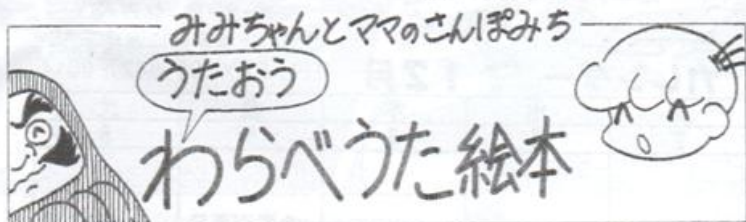 みみちゃんとママのさんぽみち
うたおう
わらべうた絵本